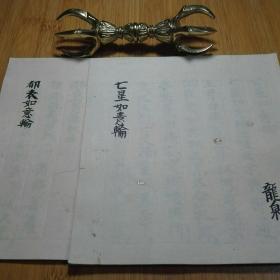 七星如意輪
龍泉
都表如意輪